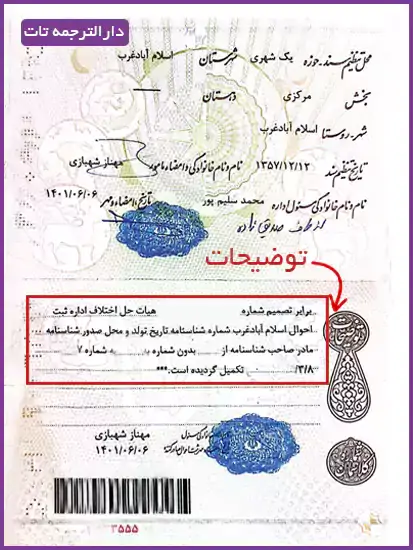 دارالترجمه تات
محل تنظیم سند-حوزه یک شهری شهرستان اسلام آبادغرب
بخش مرکزی دهستان
شهر-روستا اسلام آبادغرب
تاریخ تنظیم سند ۱۳۵۷/۱۲/۱۲ نام و نام خانوادگی و امضاء مامور مهناز شهبازی
نام و نام خانوادگی مسئول اداره محمد سلیم پور تاریخ، امضاء و مهر ۱۴۰۱/۰۶/۰۶
از طرف صدیق زاده
توضیحات
برابر تصمیم شماره هیات حل اختلاف اداره ثبت
احوال اسلام آبادغرب شماره شناسنامه تاریخ تولد و محل صدور شناسنامه
مادر صاحب شناسنامه از بدون شماره به به شماره ۷
/۳/۸ تکمیل گردیده است.***
مهناز شهبازی
۱۴۰۱/۰۶/۰۶
۳۵۵۵